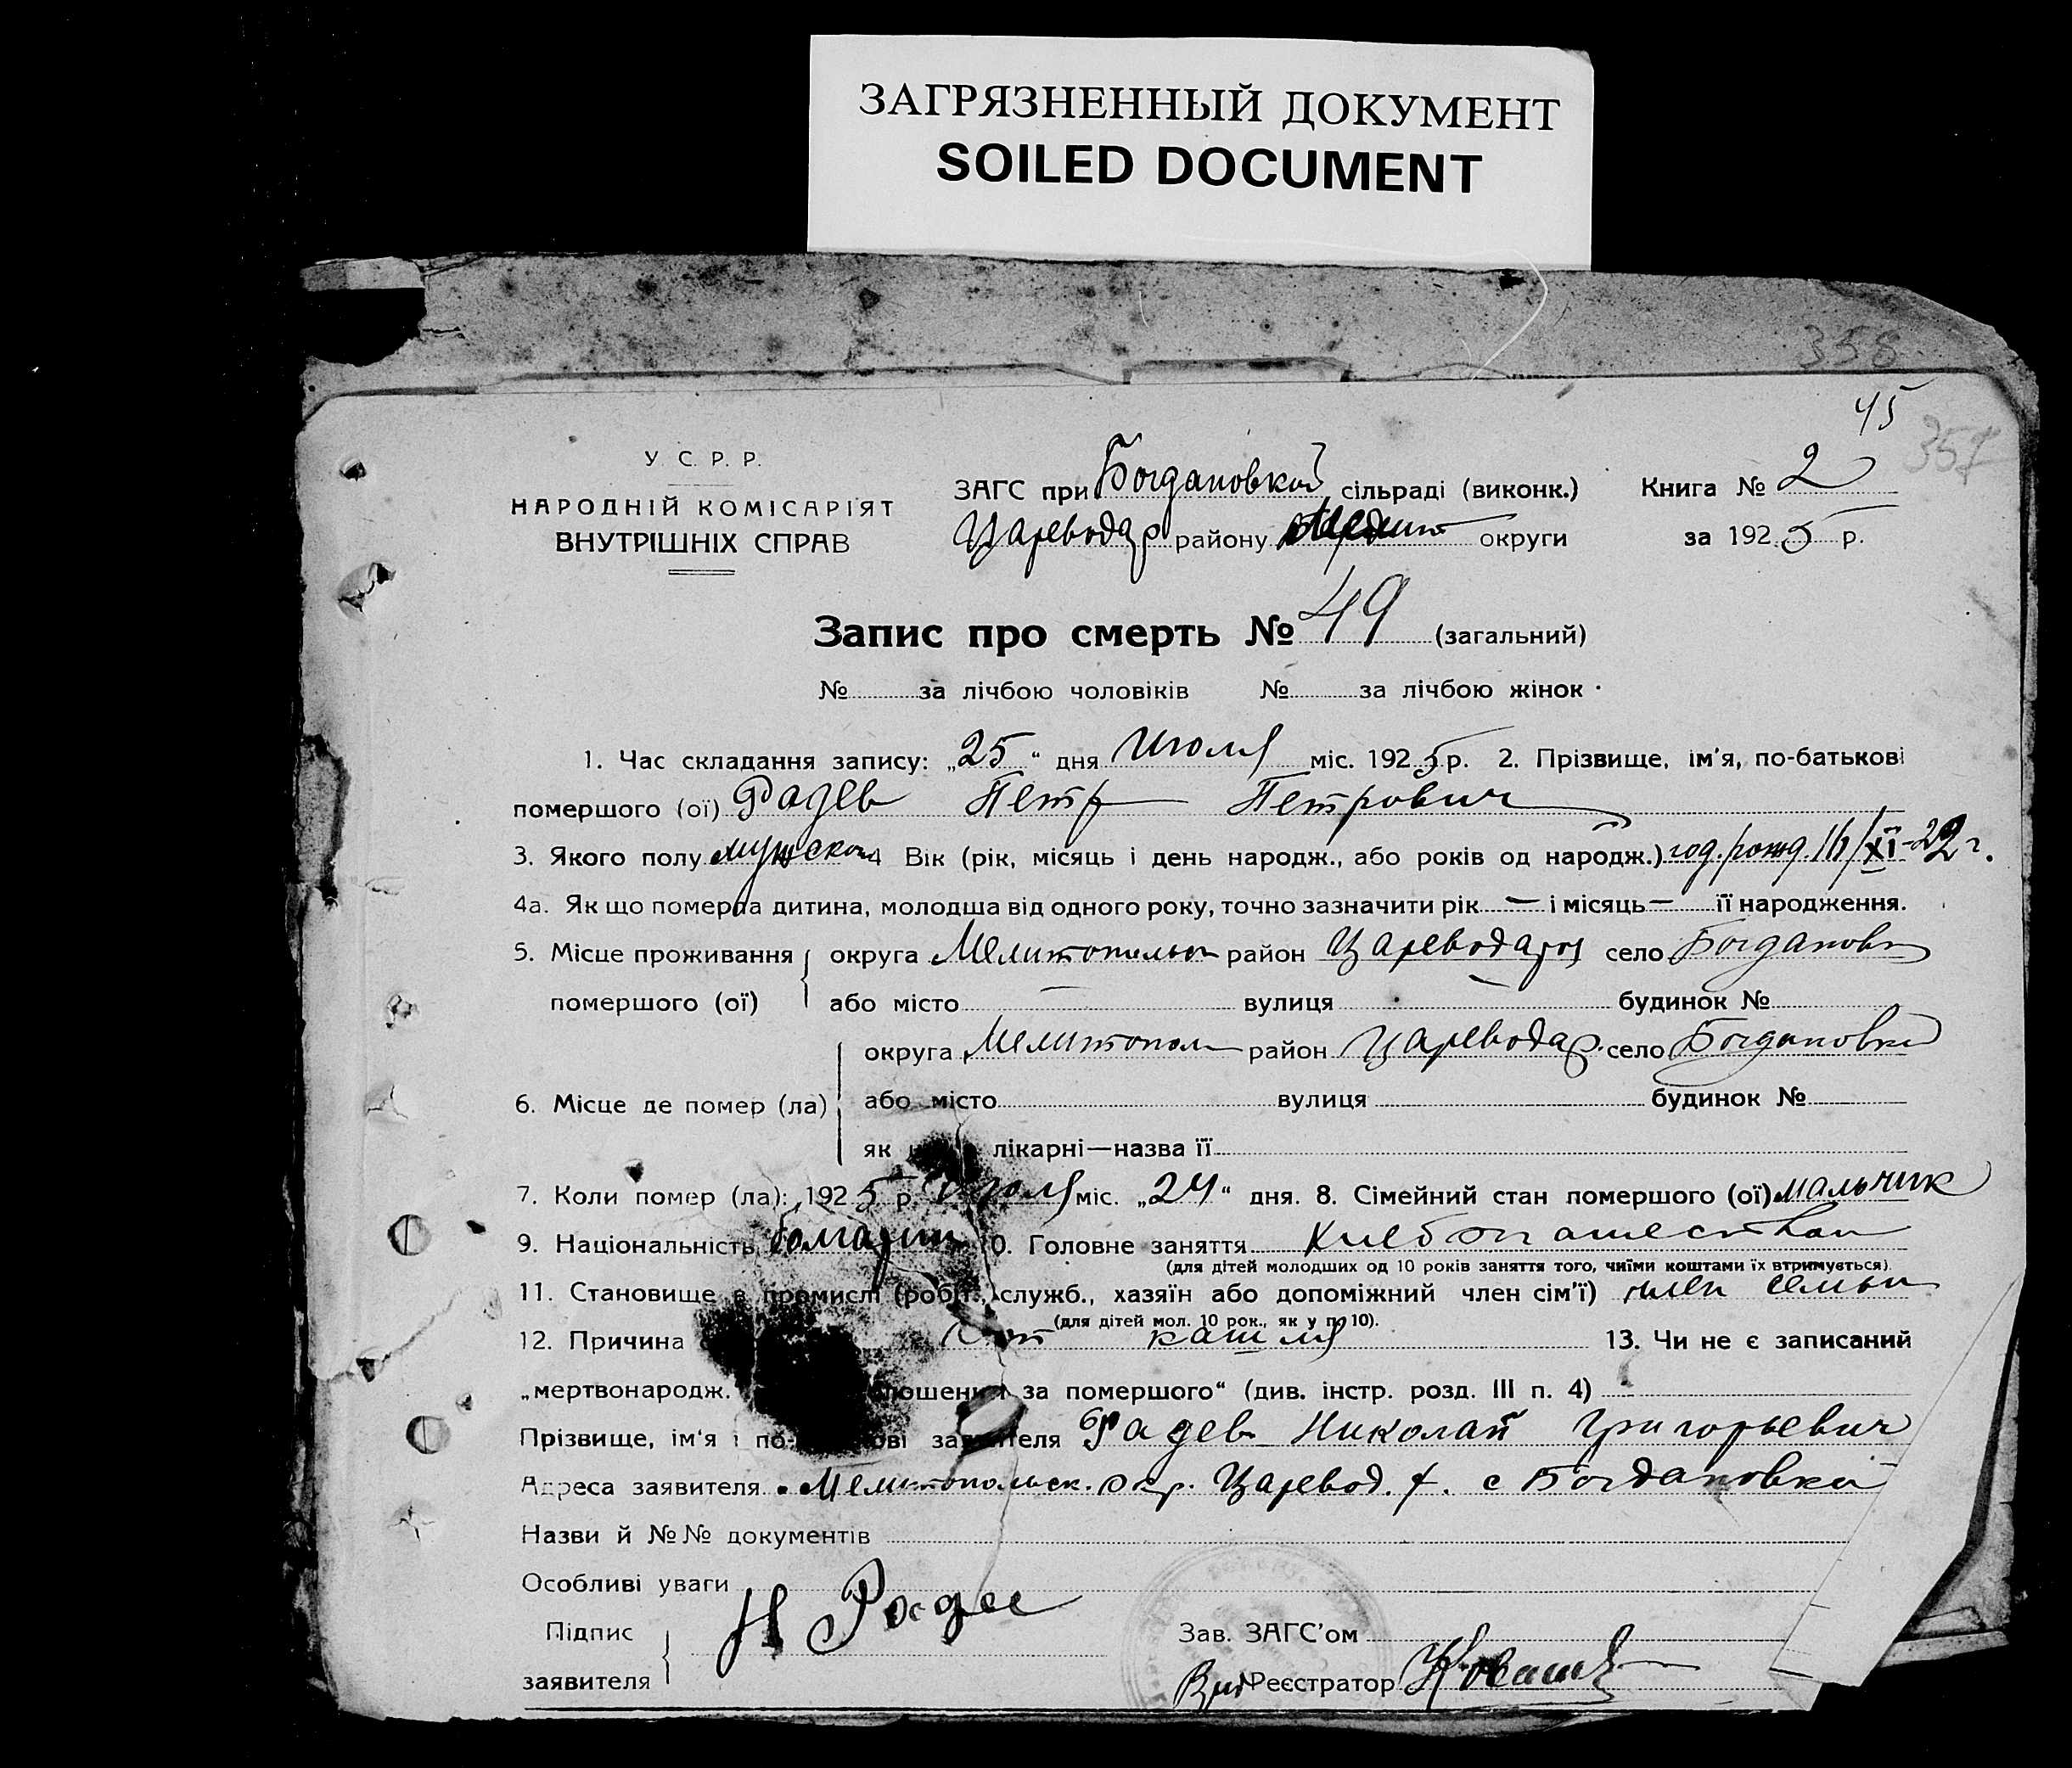 ЗАГРЯЗНЕННЫЙ ДОКУМЕНТ
SOILED DOCUMENT
358
45
357
У. С. Р. Р.
НАРОДНІЙ КОМІСАРІЯТ
ВНУТРІШНІХ СПРАВ
ЗАГС при Богдановкой сільраді (виконк.)
Книга № 2
Цареводар району округи
за 1925 р.
Запис про смерть № 49 (загальний)
№ за лічбою чоловіків № за лічбою жінок
1. Час складання запису: „25“ дня Июля міс. 1925 р. 2. Прізвище, ім'я, по-батькові
помершого (ої) Радев Петр Петрович
3. Якого полу мужской 4 Вік (рік, місяць і день народж., або років од народж.) год. рожд. XI-22 г.
4а. Як що померла дитина, молодша від одного року, точно зазначити рік — і місяць — її народження.
5. Місце проживання округа Мелитопольск район Цареводар село Богдановк
помершого (ої) або місто вулиця будинок №
округа Мелитопол район Цареводар. село Богдановка
6. Місце де помер (ла) або місто вулиця будинок №
як лікарні—назва її
7. Коли помер (ла): 1925 р. Июля міс. „24“ дня. 8. Сімейний стан помершого (ої) мальчик
9. Національність болгарин 10. Головне заняття Хлебопашеством
(для дітей молодших од 10 років заняття того, чиїми коштами їх втримується).
11. Становище в промислі (робіт., служб., хазяїн або допоміжний член сім'ї) член семьи
(для дітей мол. 10 рок., як у п. 10).
12. Причина от кашля 13. Чи не є записаний
„мертвонародж. за помершого“ (див. інстр. розд. III п. 4)
Прізвище, ім'я і по- заявителя Радев Николай Григорьевич
Адреса заявителя Мелитопольск. окр. Царевод. р. с Богдановка
Назви й №№ документів
Особливі уваги
Підпис Н Радев
Зав. ЗАГС'ом
заявителя
Реєстратор